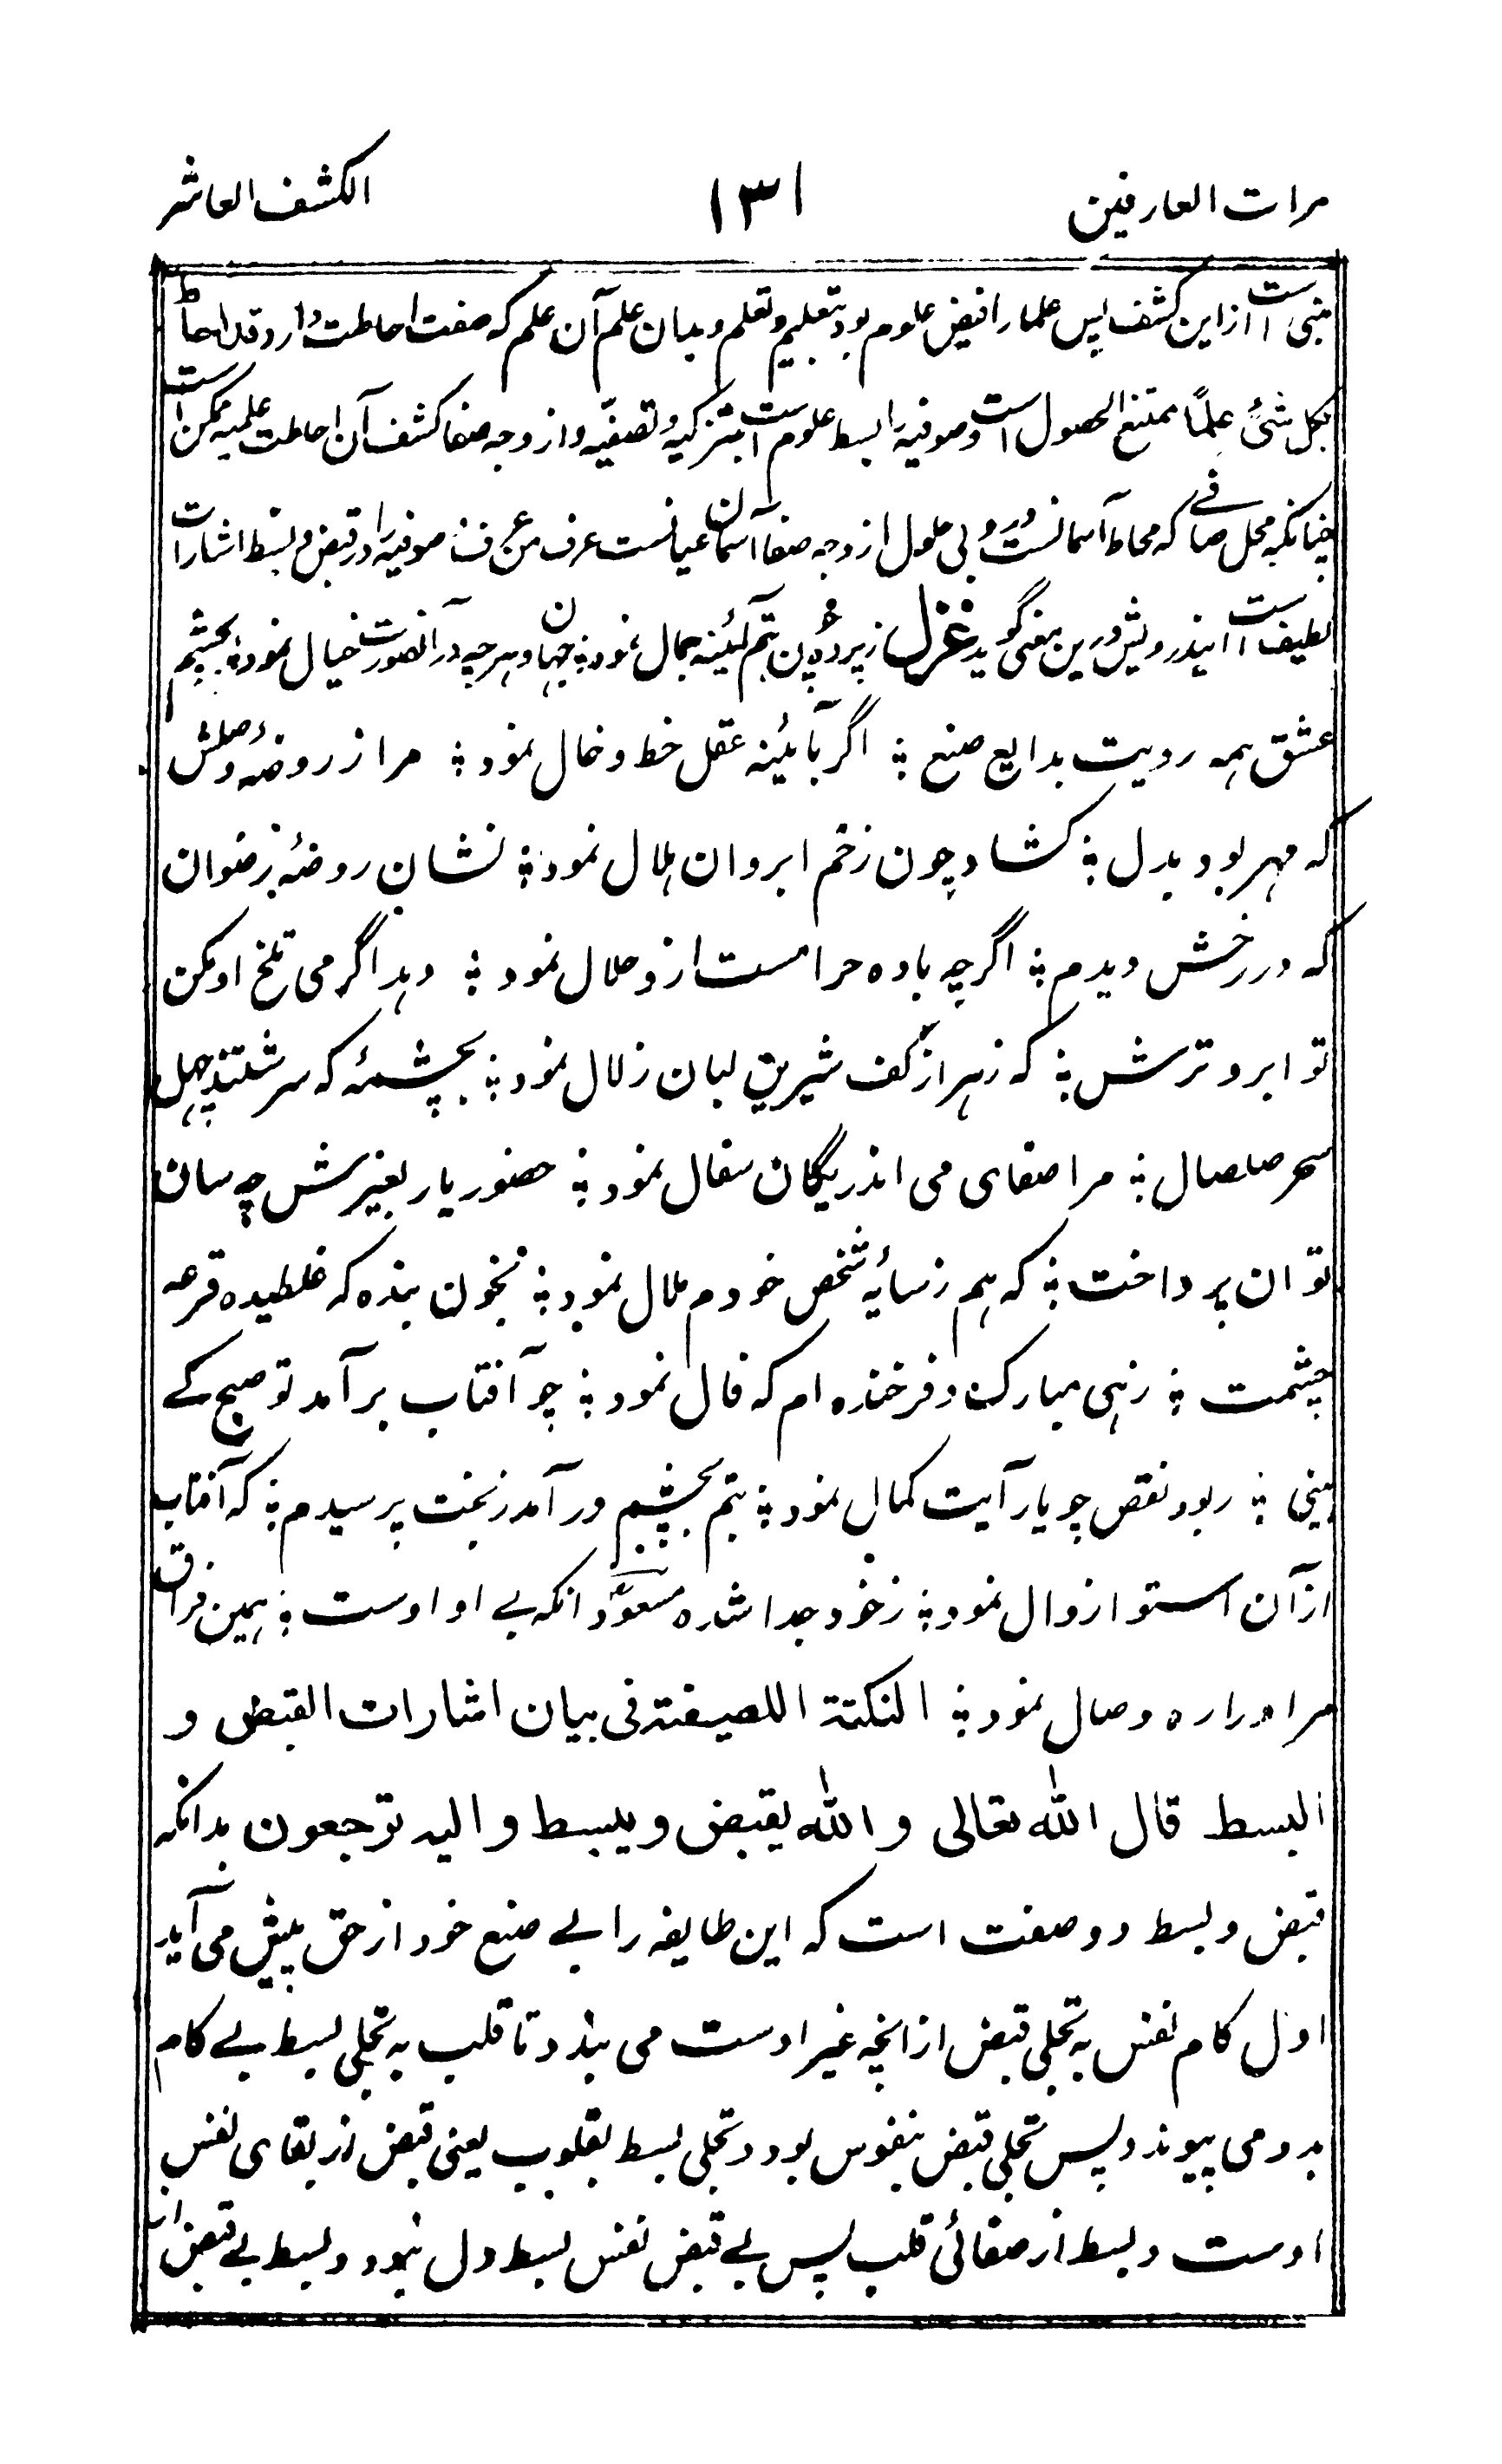 مرات العارفین ١٣١ الکشف العاشر
مبنی است ازاین کشف پس علمارا فیض علوم بود بتعلیم و تعلم و بیان علم آن علم که صفت احاطت دارد قد احاط
بکل شئ علمًا ممتنع الحصول است وصوفیه را بسط علوم است بتزکیه و تصفیّه واز وجه صفا کشف آن احاطت علمیه ممکن است
چنانکه محل صافے که محاط آسمانست و درو بی حلول از وجه صفا آسمان عیانست عرف من عرف صوفیه را در قبض و بسط اشارات
لطیف است ایندرویش درین معنی گوید غزل ز پرده چون بتم آئینه جمال نمود ؛ جهان و هرچه در آنصورت خیال نمود ؛ بچشم
عشق همه رویت بدایع صنع ؛ اگر بآئینه عقل خط و خال نمود ؛ مرا ز روضهٔ وصلش
که مهر بود بدل ؛ کشاد چون زخم ابروان هلال نمود ؛ نشان روضهٔ رضوان
که در رخش دیدم ؛ اگرچه باده حرامست ازو حلال نمود ؛ دهد اگر می تلخ او مکن
تو ابرو ترش ؛ که زهر از کف شیرین لبان زلال نمود ؛ بچشمهٔ که سرشتند چهل
سحر صلصال ؛ مرا صفای می اندر یگان سفال نمود ؛ حضور یار بغیرش چه سان
توان پرداخت ؛ که هم ز سایهٔ شخص خودم ملال نمود ؛ بخون بنده که غلطیده قرعه
چشمت ؛ زهی مبارک و فرخنده ام که فال نمود ؛ چو آفتاب برآمد تو صبح کے
بینی ؛ ربود نقص چو یار آیت کمال نمود ؛ بتم بچشم در آمد ز بخت پرسیدم ؛ که آفتاب
از آن استوا زوال نمود ؛ ز خود جدا شده مسعودؔ انکه بے او اوست ؛ همین فراق
مرا در اره وصال نمود ؛ النکتة اللطیفة فی بیان اشارات القبض و
البسط قال الله تعالی و الله یقبض و یبسط و الیه ترجعون بدانکه
قبض و بسط دو صفت است که این طایفه را بے صنع خود از حق پیش می آید
اول کام نفس به تجلی قبض از انچه غیر اوست می بندد تا قلب به تجلی بسط بے کام
بدو می پیوندد پس تجلی قبض بنفوس بود و تجلی بسط بقلوب یعنی قبض از بقای نفس
اوست و بسط از صفائی قلب پس بے قبض نفس بسط دل نبود و بسط بے قبض